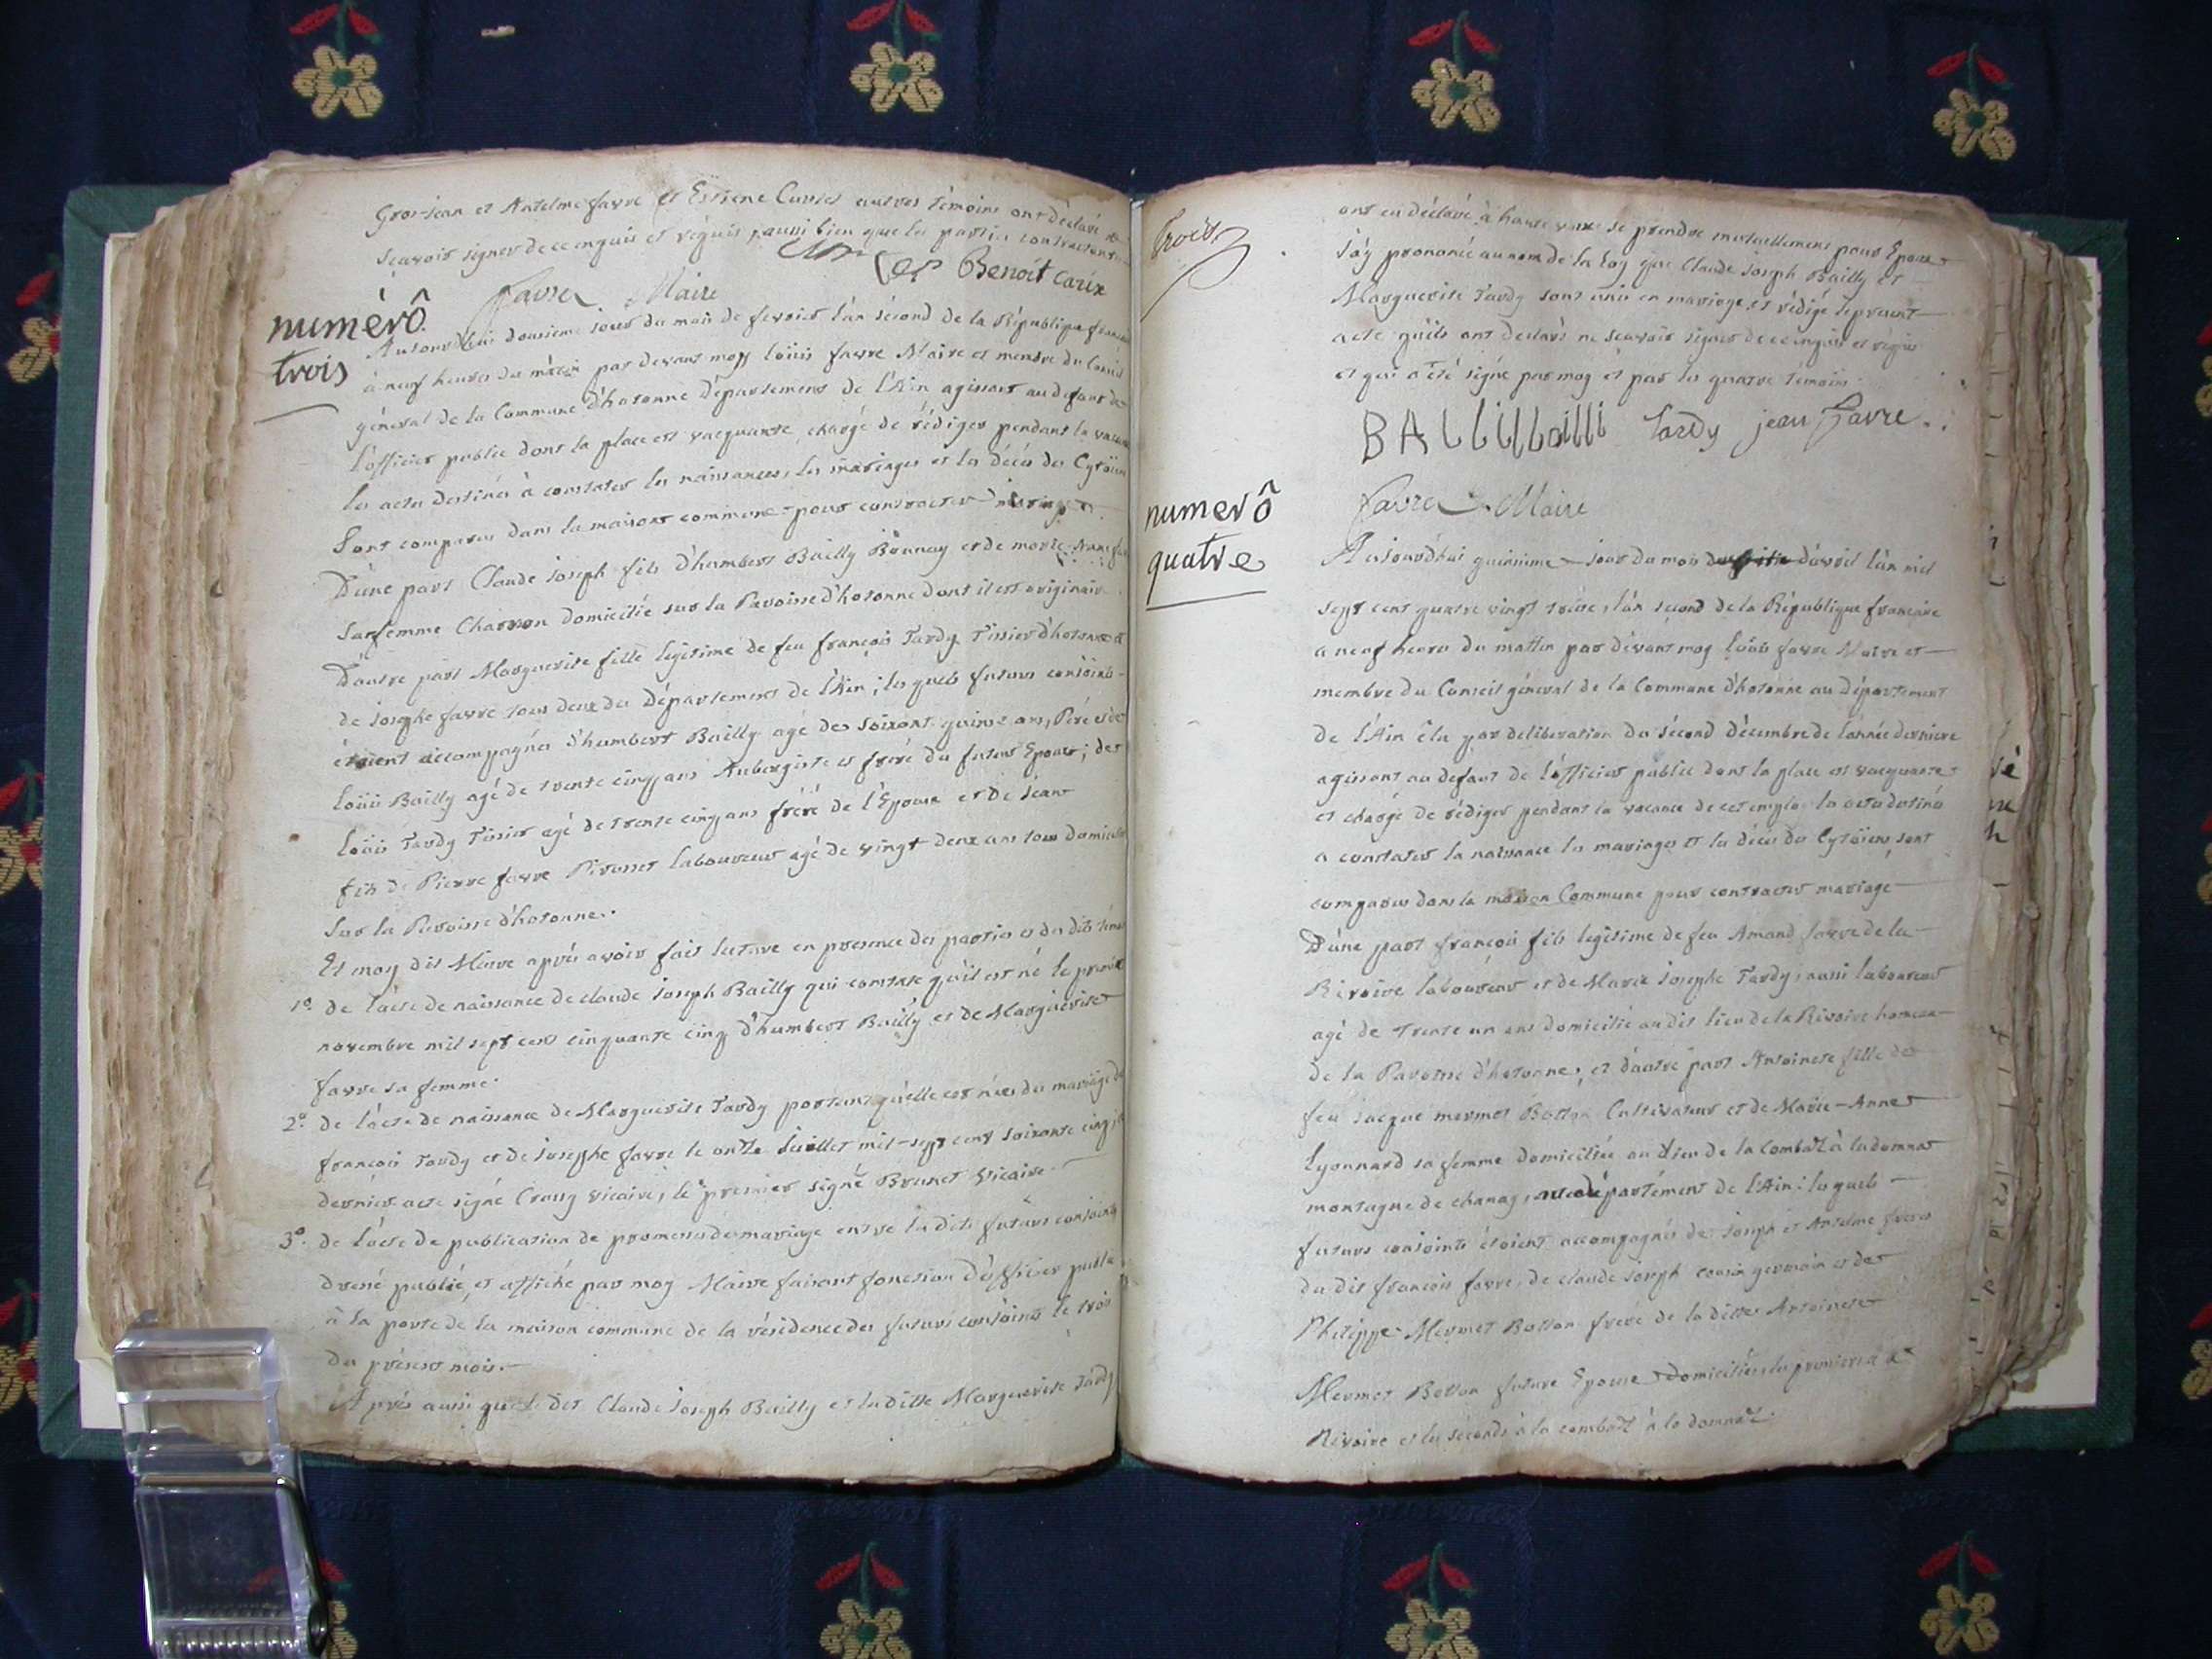 Gros-jean et Antelme favre et Estiene Curvet autres témoins ont déclaré ne
scavoir signer de ce enquis et réquis, aussi bien que les parties contractantes
Benoit Carix
favre Maire
numérô
trois
Aujourd'hui dousieme jour du mois de fevrier l'an sécond de la République francaise
à neuf heures du matin par devant moy loüis favre Maire et menbre du Conseil
général de la Commune d'hotonne département de l'Ain agissant au defaut de
l'officier public dont la place est vacquante, chargé de rédiger pendant la vacance
les actes destinés à constater les naissances, les mariages et les décés des Cytöiens
Sont comparus dans la maison commune pour contracter mariage
D'une part Claude joseph fils d'humbert Bailly Bonnay et de
sa femme Charron domicilié sur la Paroisse d'hotonne dont il est originaire
D'autre part Marguerite fille legitime de feu françois Tardy Tissier d'hotonne et
de josephe favre tous deux du Département de l'Ain; les quels futurs conjoints
étoient accompagnés d'humbert Bailly agé de soixante quinze ans, Pére et de
Loüis Bailly agé de trente cinq ans Aubergiste et frére du futur Epoux; de
Loüis Tardy Tissier agé de trente cinq ans frére de l'Epouse et de jean
fils de Pierre favre Pirosset laboureur agé de vingt deux ans tous domiciliés
sur la Paroisse d'hotonne.
Et moy dit Maire aprés avoir fait lecture en presence des parties et des dits témoins
1º. de l'acte de naissance de claude joseph Bailly qui constate qu'il est né le premier
novembre mil sept cent cinquante cinq d'humbert Bailly et de Marguerite
favre sa femme.
2º. de l'acte de naissance de Marguerite Tardy portant qu'elle est née du mariage de
francois Tardy et de josephe favre le onze juillet mil-sept cent soixante cinq,
dernier acte signé Crussy vicaire, le premier signé Brunet Vicaire.
3º. de l'acte de publication de promesse de mariage entre les dits futurs conjoints
dréné publié, et affiché par moy Maire faisant fonction d'officier public
à la porte de la maison commune de la résidence des futurs conjoints le trois
du présent mois.
Aprés aussi que le dit Claude joseph Bailly et la ditte Marguerite Tardy
Trois
ont eu déclaré à haute voix se prendre mutuellement pour Epoux
j'ay prononcé au nom de la Loy que Claude joseph Bailly et
Marguerite Tardy sont unis en mariage, et rédigé le present
acte qu'ils ont declarés ne scavoir signer de ce enquis et réquis
et qui a été signé par moy et par les quatre témoins.
BALLILbailli Tardy jean favre.
favre Maire
numerô
quatre
Aujourd'hui quinsieme jour du mois d'avril l'an mil
sept cent quatre vingt treise, l'an second de la République francaise
a neuf heures du mattin par dévant moy loüis favre Maire et
membre du Conseil général de la Commune d'hotonne au département
de l'Ain élu par deliberation du sécond décembre de l'année derniere
agissant au defaut de l'officier public dont la place est vacquante
et chargé de rédiger pendant la vacance de cet employ les actes destinés
a constater la naissance les mariages et les décés des Cytöiens sont
comparus dans la maison Commune pour contracter mariage
D'une part françois fils legitime de feu Amand favre de la
Rivoire laboureur et de Marie josephe Tardy, aussi laboureur
agé de trente un ans domicilié au dit lieu de la Rivoire hameau
de la Paroisse d'hotonne, et d'autre part Antoinete fille de
feu jacque mermet Botton Cultivateur et de Marie-Anne
Lyonnard sa femme domiciliée au lieu de la Combaz à la donnaz
montagne de chanay, département de l'Ain: les quels
futurs conjoints étoient accompagnés de joseph et Antelme freres
du dit francois favre, de claude joseph cousin germain et de
Philippe Mermet Botton frere de la ditte Antoinete
Mermet Botton future Epouse domiciliés les premiers à
Rivoire et les seconds à la combaz à la donnaz.